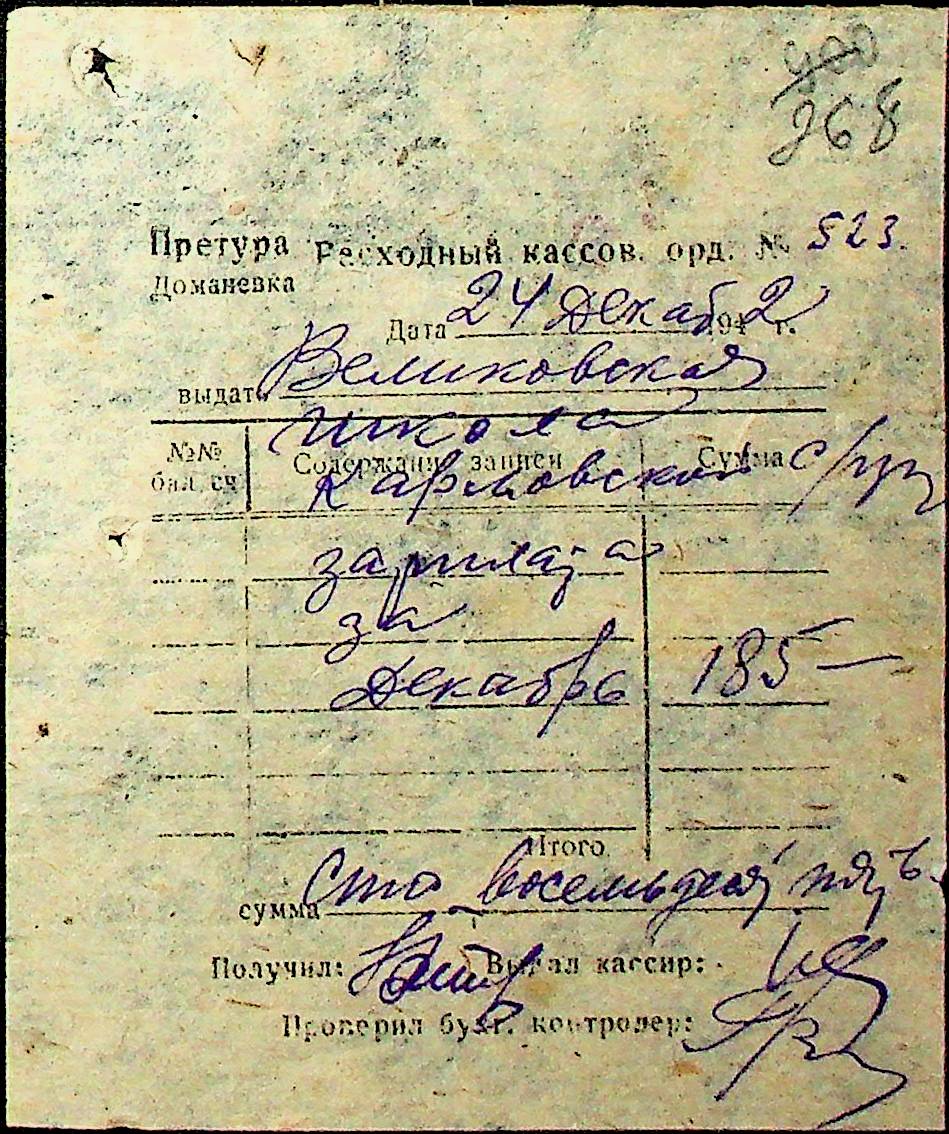 400
368
Претура Расходный кассов. орд. № 523.
Доманевка
Дата 24 Декаб 1942 г.
выдать Великовская
школа
№№ бал. сч Содержание записи Сумма
Карловской с/упр
зарплата
за
Декабрь 185 —
Итого
сумма Сто восемьдесят пять.
Получил: Выдал кассир:
Проверил бухг. контролер: